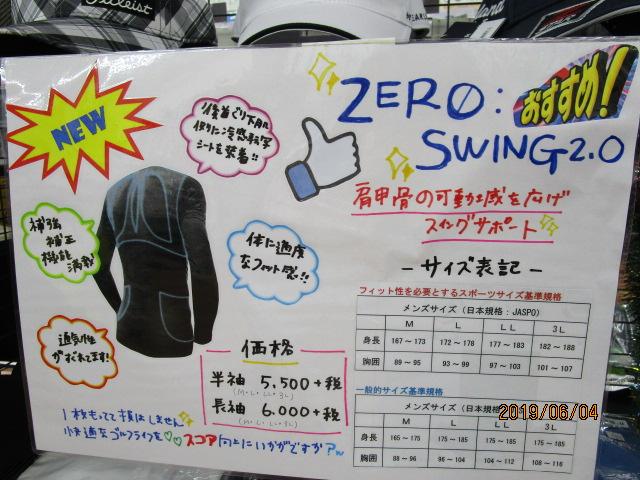 Titleist
NEW
後首ぐり下周辺
ZERO:
SWING 2.0
おすすめ!
肩甲骨の可動域を広げ
スイングサポート
補強
補正
機能
満載
体に適度
なフィット感!!
通気性
がすぐれてます!
価格
半袖 5,500+税
(M・L・LL・3L)
長袖 6,000+税
(M・L・LL・3L)
1枚もってて損はしません
快適なゴルフライフを♡♡スコア向上にいかがですか?
-サイズ表記-
フィット性を必要とするスポーツサイズ基準規格
メンズサイズ(日本規格:JASPO)
M L LL 3L
身長 167~173 172~178 177~183 182~188
胸囲 89~95 93~99 97~103 101~107
一般的サイズ基準規格
メンズサイズ(日本規格
M L LL 3L
身長 165~175 175~185 175~185 175~185
胸囲 88~96 96~104 104~112 108~116
2019/06/04